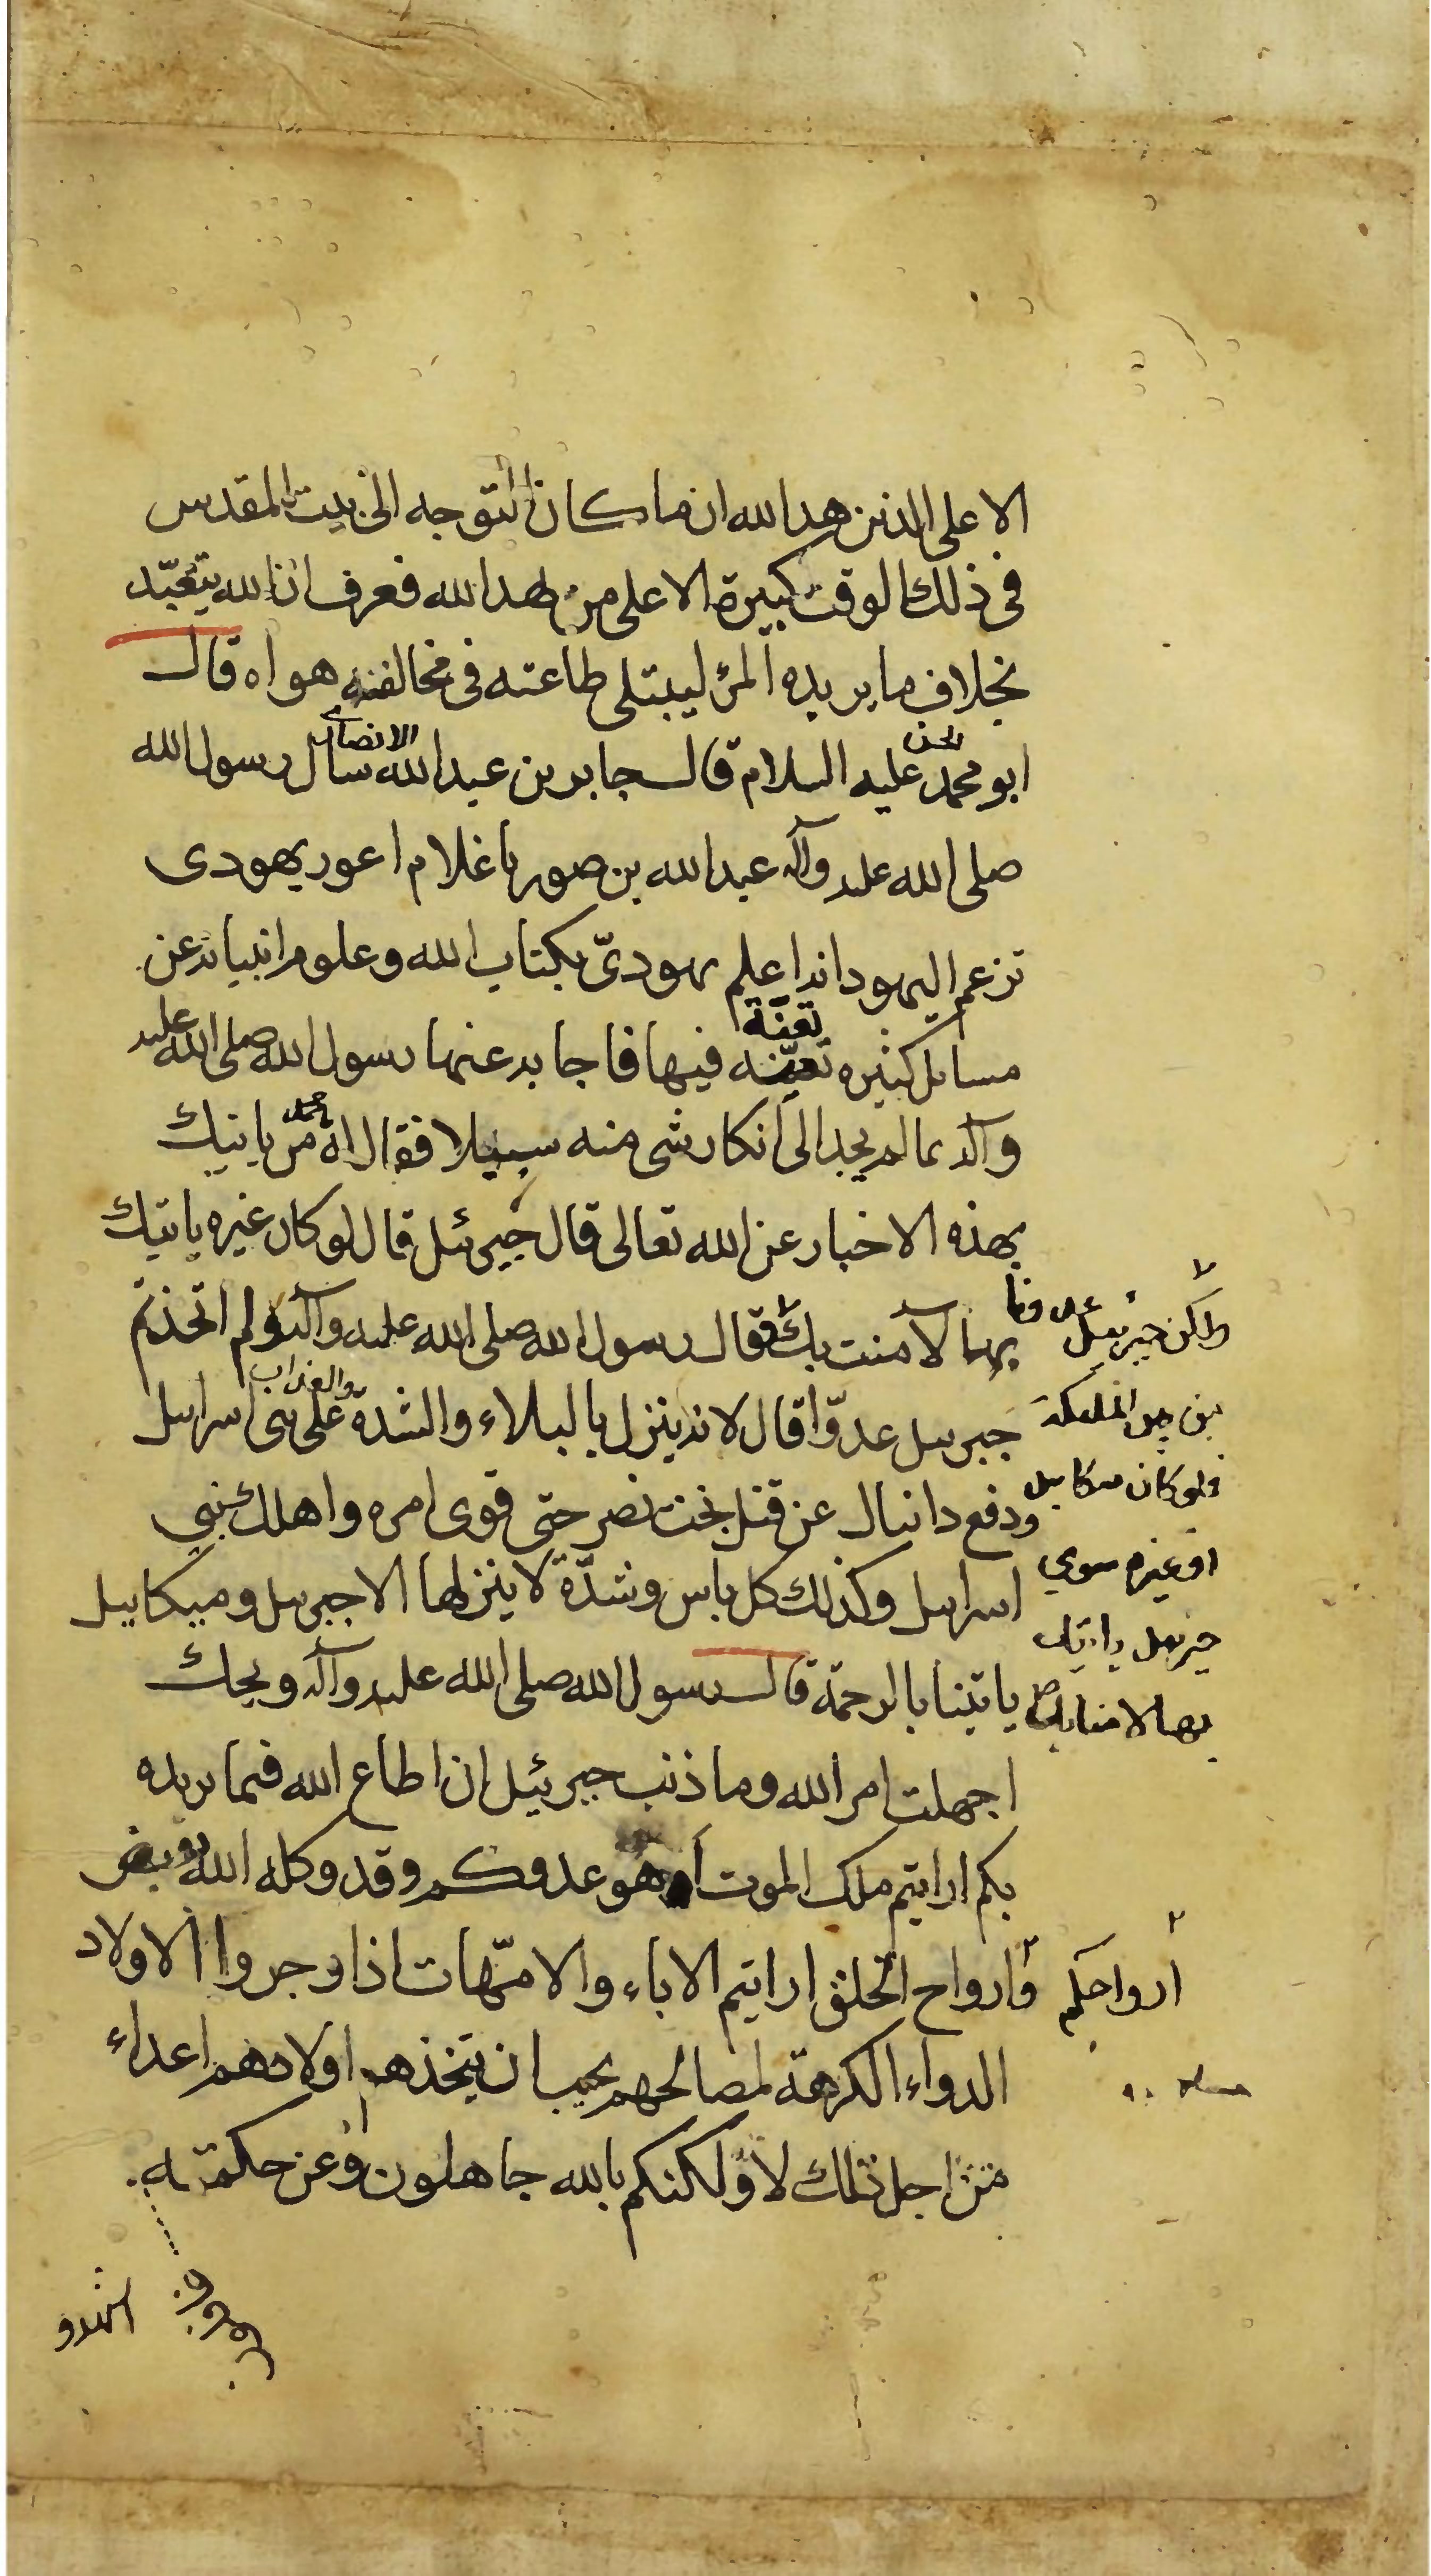 الا على الذين هدا لله ان ما كان التوجه الى بيت المقدس
فى ذلك الوقت كبيرة الا على من هدا لله فعرف ان لله يتعبّد
بخلاف ما يريده المرٔ ليبتلى طاعته فى مخالفته هواه قال
الحسن الانصاري
ابو محمد عليه السلام قال جابر بن عبد الله سال رسول الله
صلى الله عليه وآله عبد الله بن صوريا غلام اعور يهودى
تزعم اليهود انه اعلم يهوديّ بكتاب الله وعلوم انبيائه عن
تعنّته
مسائل كثيره فيها فاجابه عنها رسول الله صلى الله عليه
وآله بما لم يجد الى انكار شى منه سبيلا فقال له يا محمد من ياتيك
بهذه الاخبار عن الله تعالى قال جبرئيل قال لو كان غيره ياتيك
بها لآمنت بك فقال رسول الله صلى الله عليه وآله ولم اتخذتم
والعذاب
جبرئيل عدوّا قال لانه ينزل بالبلاء والشدة على بنى اسرائيل
ودفع دانيال عن قتل بخت نصر حتى قوى امره واهلك بني
اسرائيل وكذلك كل باس وشدّة لا ينزلها الا جبرئيل وميكاييل
ياتينا بالرحمة قال رسول الله صلى الله عليه وآله ويحك
اجهلت امر الله وما ذنب جبرئيل ان اطاع الله فيما يريده
بكم ارايتم ملك الموت اهو عدوكم وقد وكله الله بقبض
وارواح الخلق ارايتم الاباء والامّهات اذا وجروا الاولاد
الدواء الكرهة لمصالحهم يجب ان يتخذهم اولادهم اعداء
من اجل ذلك لا ولكنكم بالله جاهلون وعن حكمته
ولكن جبرئيل عدونا
من بين الملئكة
فلو كان ميكاييل
او غيره سوي
جبرئيل ياتيك
بها لامنا بك
ارواحكم